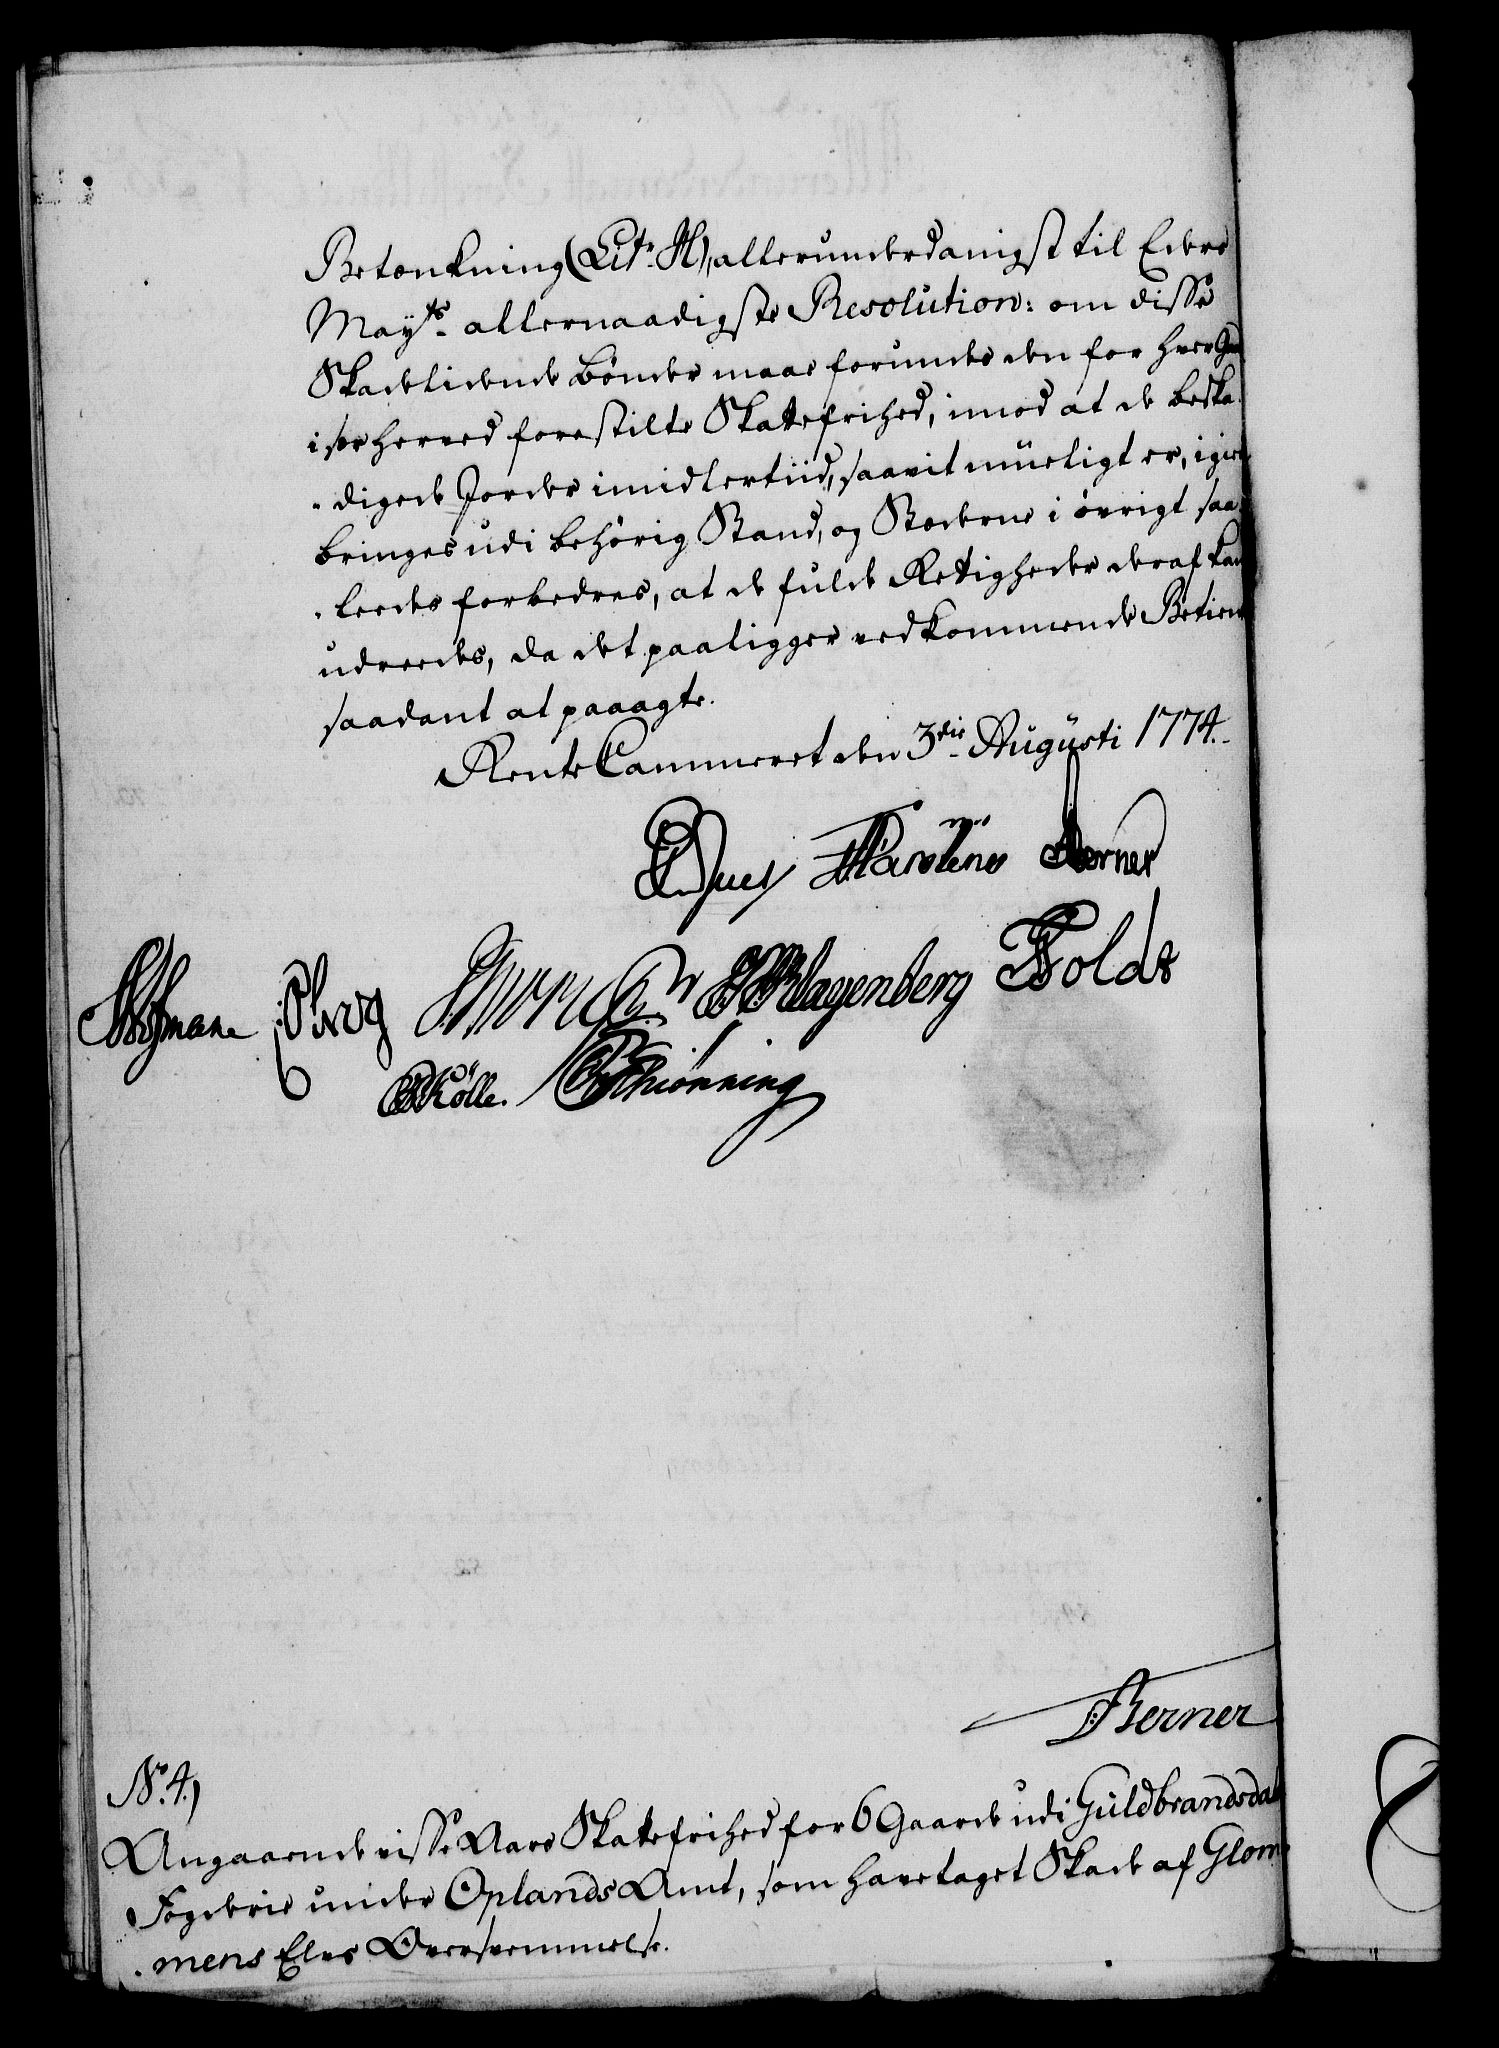 Betænkning (Lit. H), allerunderdanigst til Eders
Mayts. allernaadigste Resolution: om disse
Skadelidende Bønder maae forundes den for hver Gaard
i sær herved forestilte Skattefrihed, imod at de beska-
digede Jorder imidlertiid, saavit müeligt er, igien
bringes udi behørig Stand, og Stæderne i øvrigt saa-
leedes forbedres, at de fulde Rettigheder deraf kan
udreedes, da det paaligger vedkommende Betient
saadant at paaagte.
RenteCammeret den 3die Augüsti 1774.
Martens Berner
Hofmann J. Klagenberg Holde
Kølle. Schiønning
Berner
No. 4.)
Angaaende visse Aars Skattefrihed for 6 Gaarde udi Güldbrandsdal
Fogderie under Oplands Amt, som have taget Skade af Glom-
mens Elvs Oversvemmelse.